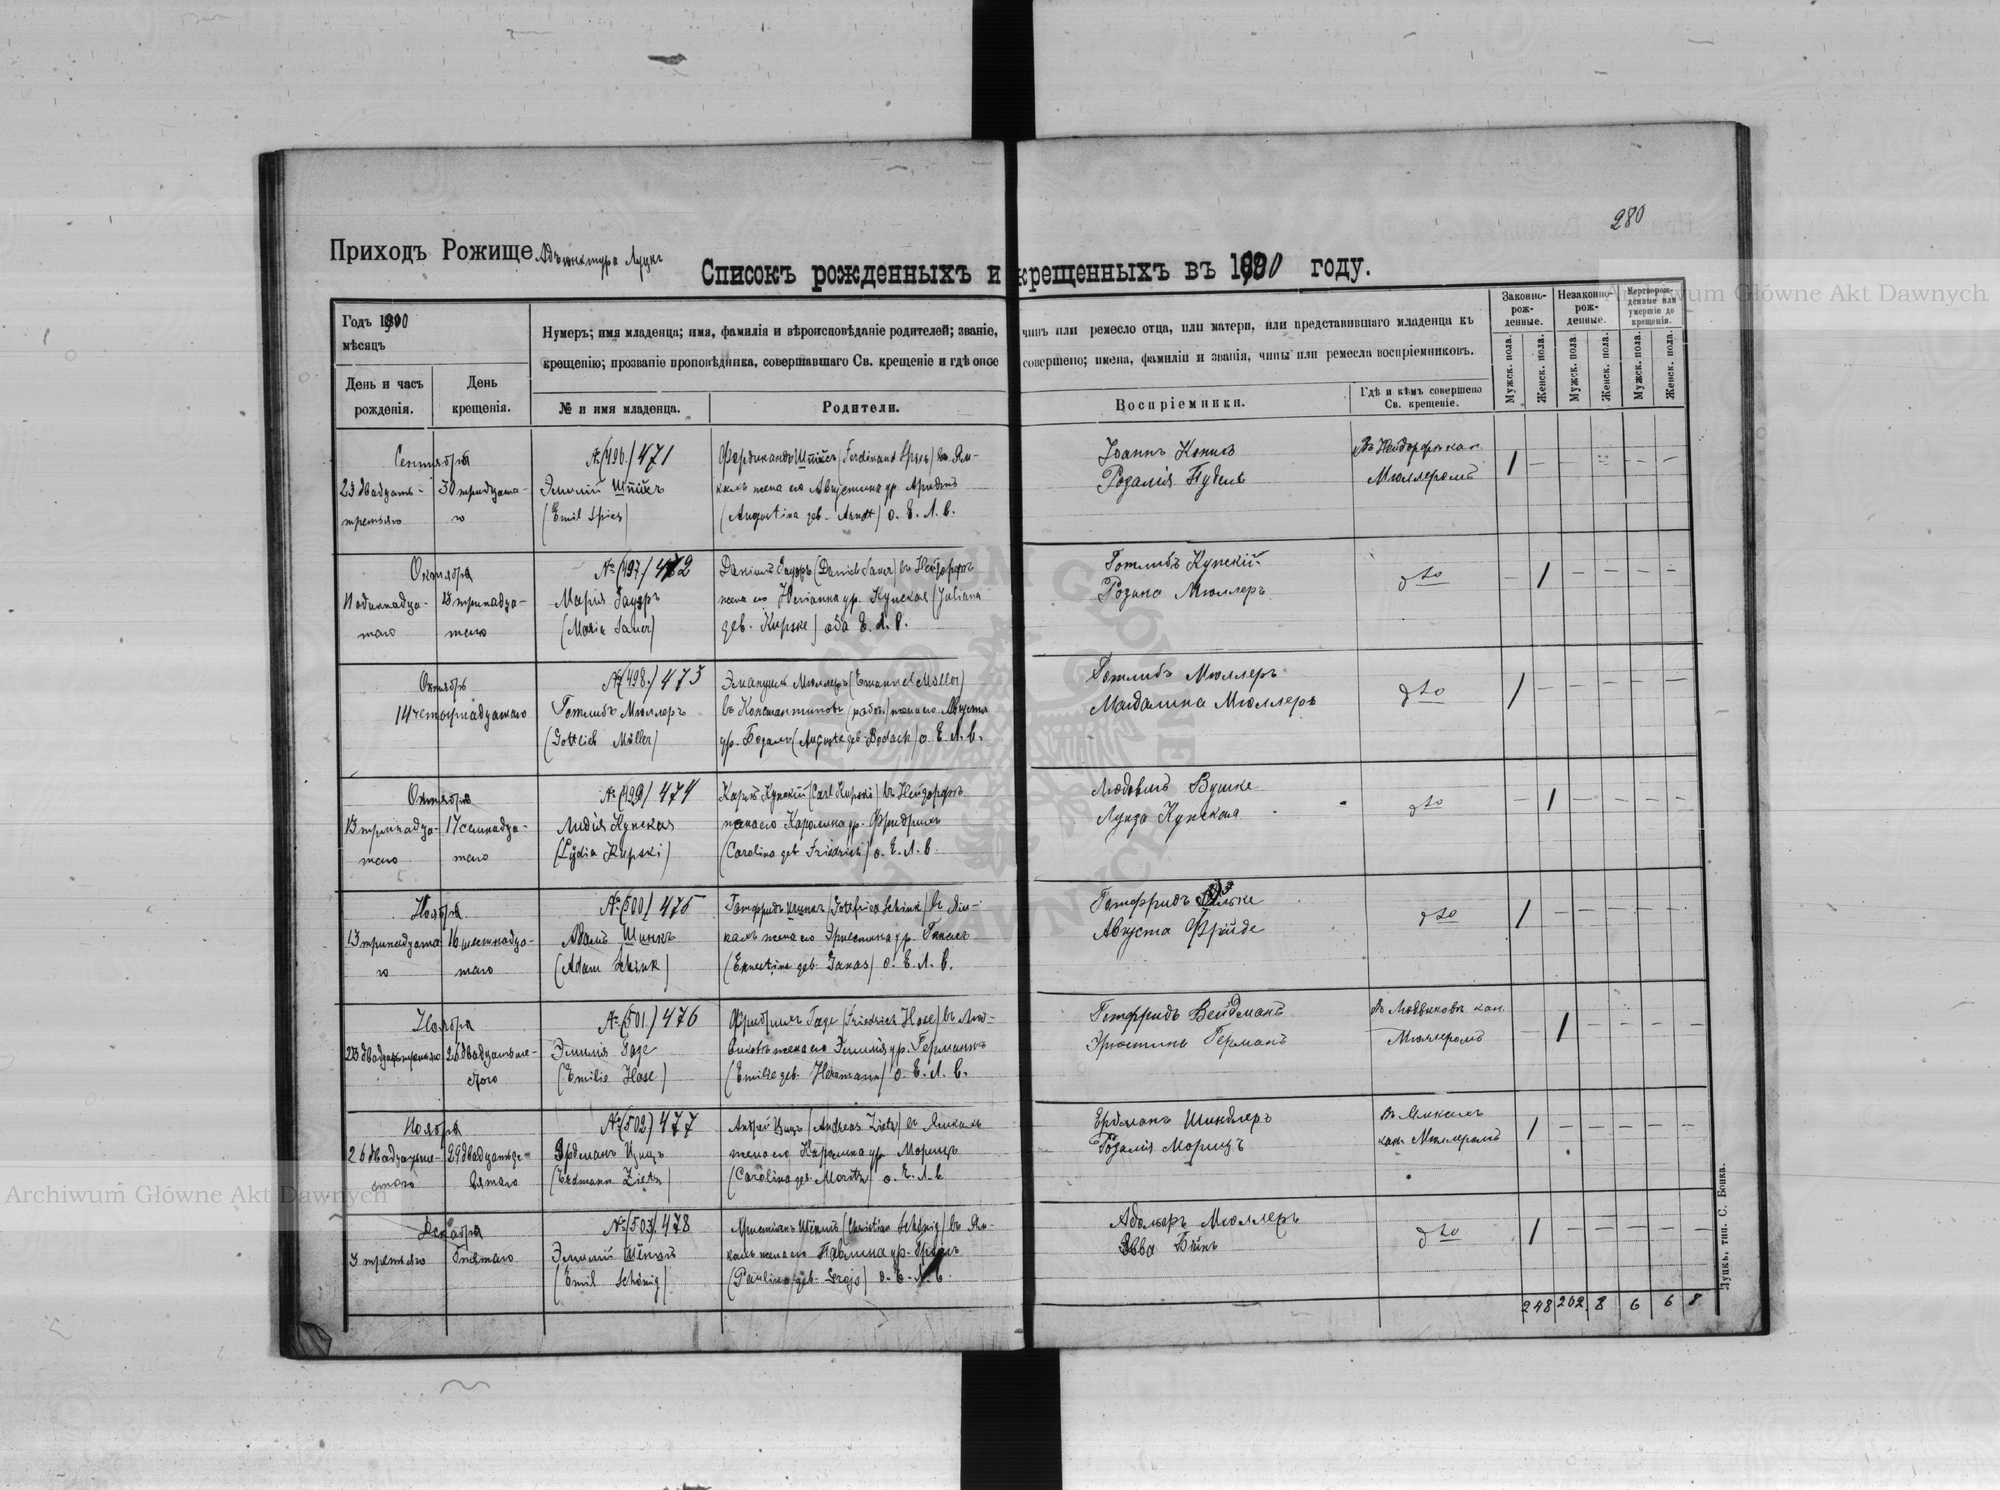 280
Приходъ Рожище Адъюнктура Луцкъ
Списокъ рожденныхъ и крещенныхъ въ 1900 году.
Годъ 1900
мѣсяцъ
День и часъ рожденія.
День крещенія.
Нумеръ; имя младенца; имя, фамилія и вѣроисповѣданіе родителей; званіе, чинъ или ремесло отца, или матери, или представившаго младенца къ
крещенію; прозваніе проповѣдника, совершавшаго Св. крещеніе и гдѣ оное совершено; имена, фамиліи и званія, чины или ремесла воспріемниковъ.
№ и имя младенца.
Родители.
Воспріемники.
Гдѣ и кѣмъ совершено Св. крещеніе.
Законно-рож-денные.
Незаконно-рож-денные.
Мертворож-денные или умершіе до крещенія.
Мужск. пола.
Женск. пола.
Мужск. пола.
Женск. пола.
Мужск. пола.
Женск. пола.
Сентября
23 двадцать третьяго
30 тридцатаго
№ (496.) 471
Эмилій Шписъ
(Emil Spies)
Фердинандъ Шписъ (Ferdinand Spies) въ Ям-
кахъ жена его Августина ур. Арндтъ
(Augustina geb. Arndt) о. Е. Л. в.
Розалія
Въ Нейдорфѣ кан.
Мюллеромъ
1
Октября
11 одиннадцатаго
13 тринадцатаго
№ (497.) 472
Марія Зауэръ
(Maria Sauer)
Даніилъ Зауэръ (Daniel Sauer) въ Нейдорфѣ
жена его Юліанна ур. Купская (Juliana
geb. Kupske) оба Е. Л. в.
Готлибъ Купскій
Розина Мюллеръ
dto
1
Октября
14 четырнадцатаго
№ (498.) 473
Готлибъ Мюллеръ
(Gottlieb Müller)
Эмануилъ Мюллеръ (Emanuel Müller)
въ Константиновкѣ жена его Августа
ур. Бодакъ (Auguste geb. Bodack) о. Е. Л. в.
Готлибъ Мюллеръ
Магдалина Мюллеръ
dto
1
Октября
13 тринадцатаго
17 семнадцатаго
№ (499) 474
Лидія Купская
(Lydia Kupski)
Карлъ Купскій (Carl Kupski) въ Нейдорфѣ
жена его Каролина ур. Фридрихъ
(Carolina geb. Friedrich) о. Е. Л. в.
Людовикъ Бушке
Луиза Купская
dto
1
Ноября
13 тринадцатаго
16 шестнадцатаго
№ (500) 475
Адамъ Шинкъ
(Adam Schink)
Готфридъ Шинкъ (Gottfried Schink) въ Ям-
кахъ жена его Эрнестина ур.
(Ernestine geb. Janas) о. Е. Л. в.
Готфридъ
Августа Фрейде
dto
1
Ноября
23 двадцать третьяго
26 двадцать шестого
№ (501.) 476
Эмилія Газе
(Emilie Hase)
Фридрихъ Газе (Friedrich Hase) въ Люд-
виковкѣ жена его Эмилія ур. Германнъ
(Emilie geb. Hermann) о. Е. Л. в.
Готфридъ Вейдманъ
Германъ
Въ Людвиковкѣ кан.
Мюллеромъ
1
Ноября
26 двадцать шестаго
29 двадцать девятаго
№ (502) 477
Эрдманъ Цицъ
(Erdmann Zietz)
Андрей Цицъ (Andreas Zietz) въ Ямкахъ
жена его Каролина ур. Морицъ
(Carolina geb. Moritz) о. Е. Л. в.
Ердманъ Шиндлеръ
Розалія Морицъ
Въ Ямкахъ
кан. Мюллеромъ
1
Декабря
3 третьяго
6
№ (503) 478
Эмилій Шёнигъ
(Emil Schönig)
Христіанъ Шёнигъ (Christian Schönig) въ Ям-
кахъ жена его Павлина ур.
(Paulina geb.) о. Е. Л. в.
Адольфъ Мюллеръ
Эва
dto
1
248 202 8 6 6 8
Луцкъ, тип. С. Бонка.
Archiwum Główne Akt Dawnych
Archiwum Główne Akt Dawnych
ARCHIWUM GŁÓWNE AKT DAWNYCH